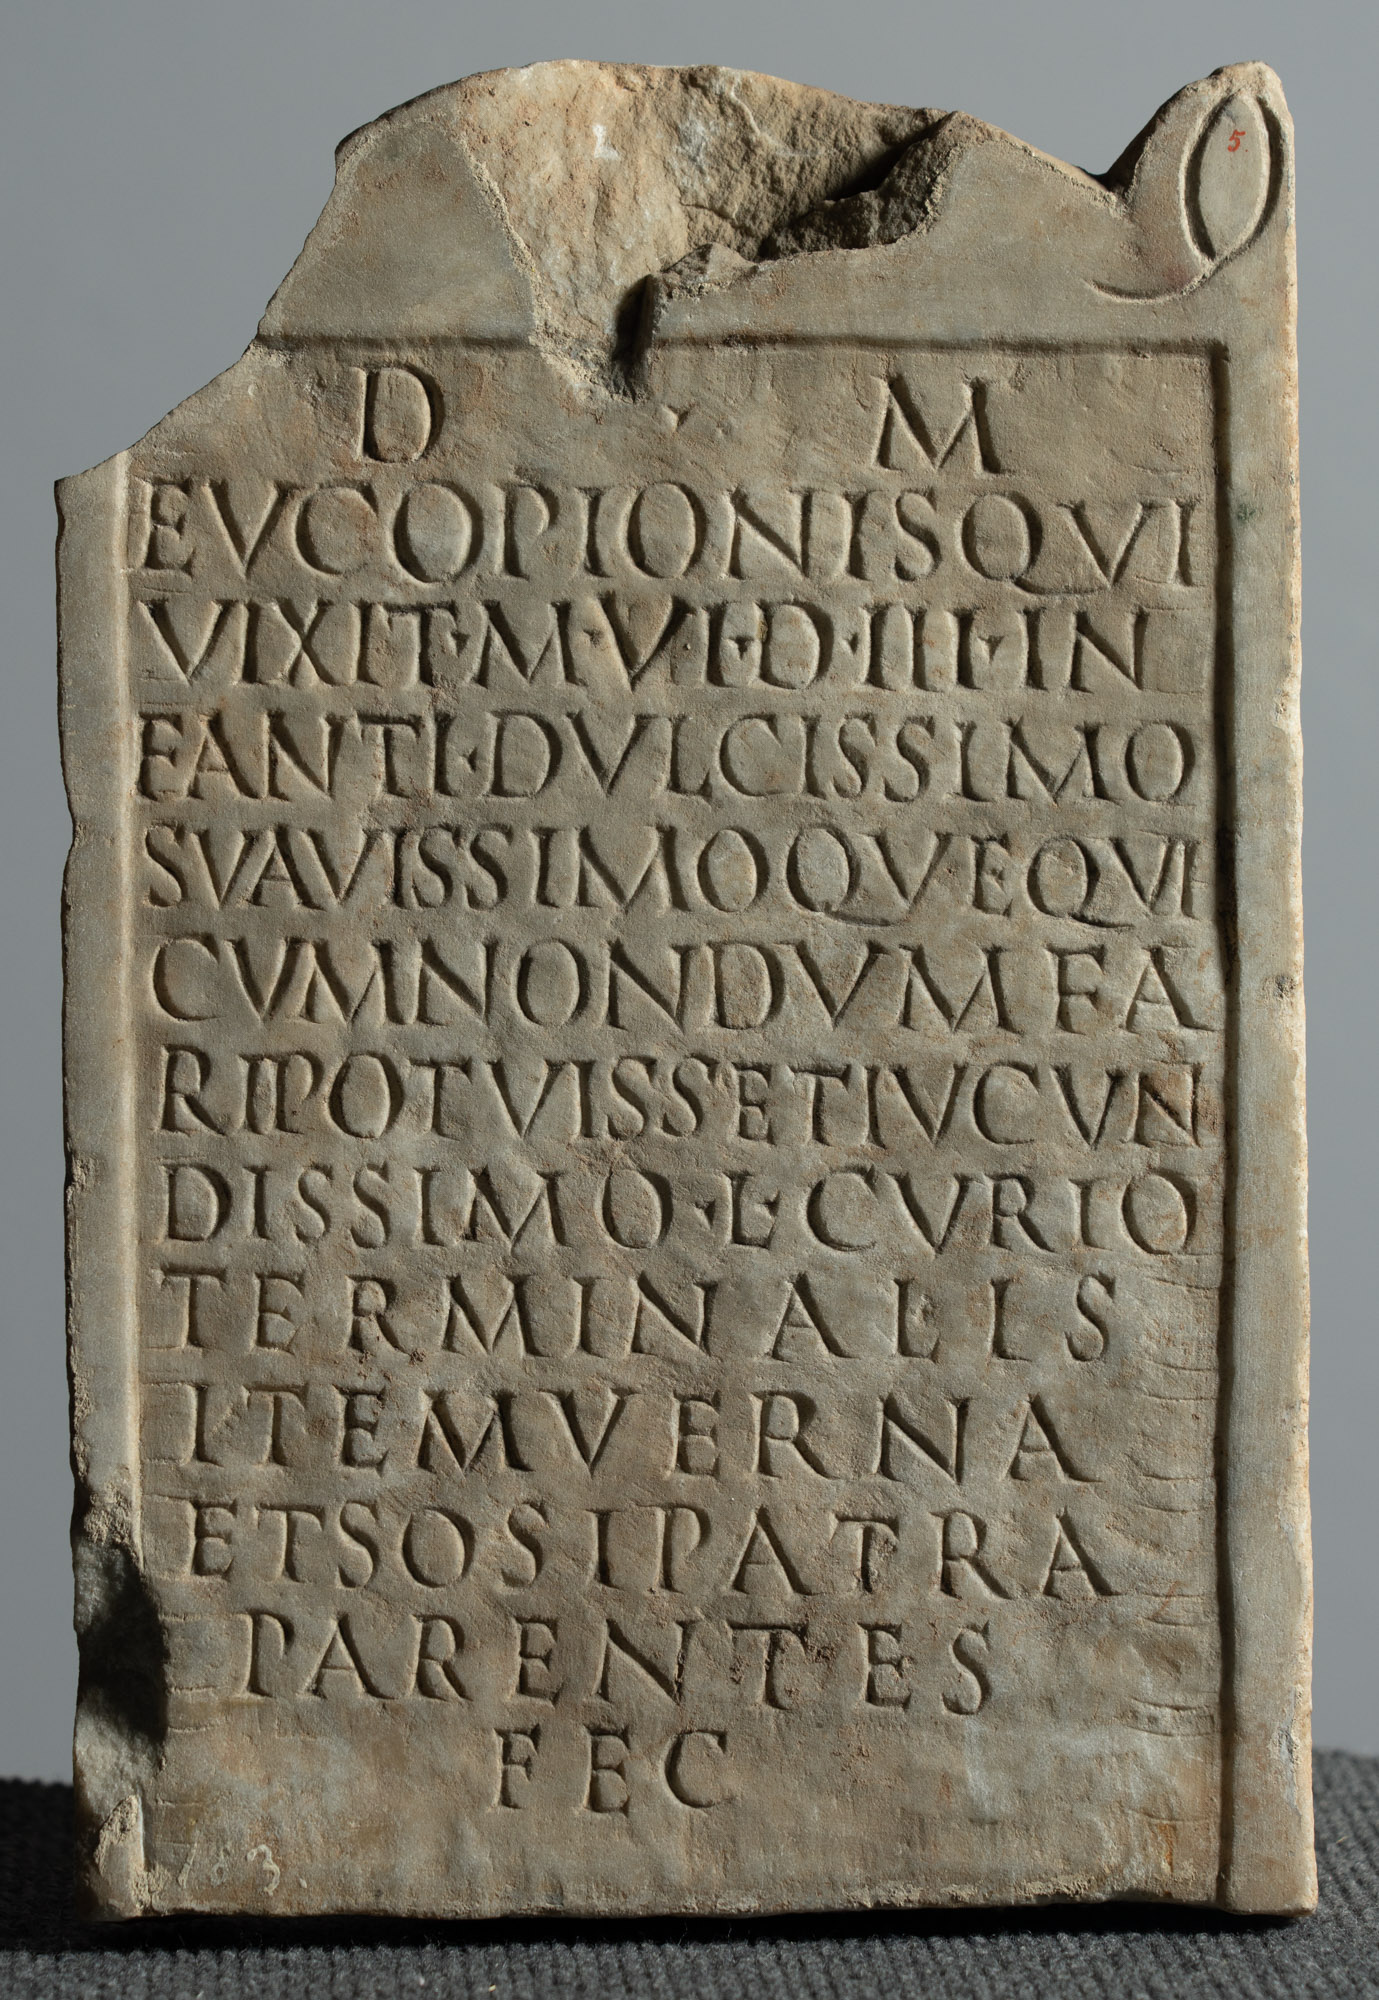 5
D · M
EVCOPIONISQVI
VIXIT·M·VI·D·III·IN
FANTI·DVLCISSIMO
SVAVISSIMOQVEQVI
CVMNONDVMFA
RIPOTVISSETIVCVN
DISSIMO·L·CVRIO
TERMINALIS
ITEMVERNA
ETSOSIPATRA
PARENTES
FEC
183